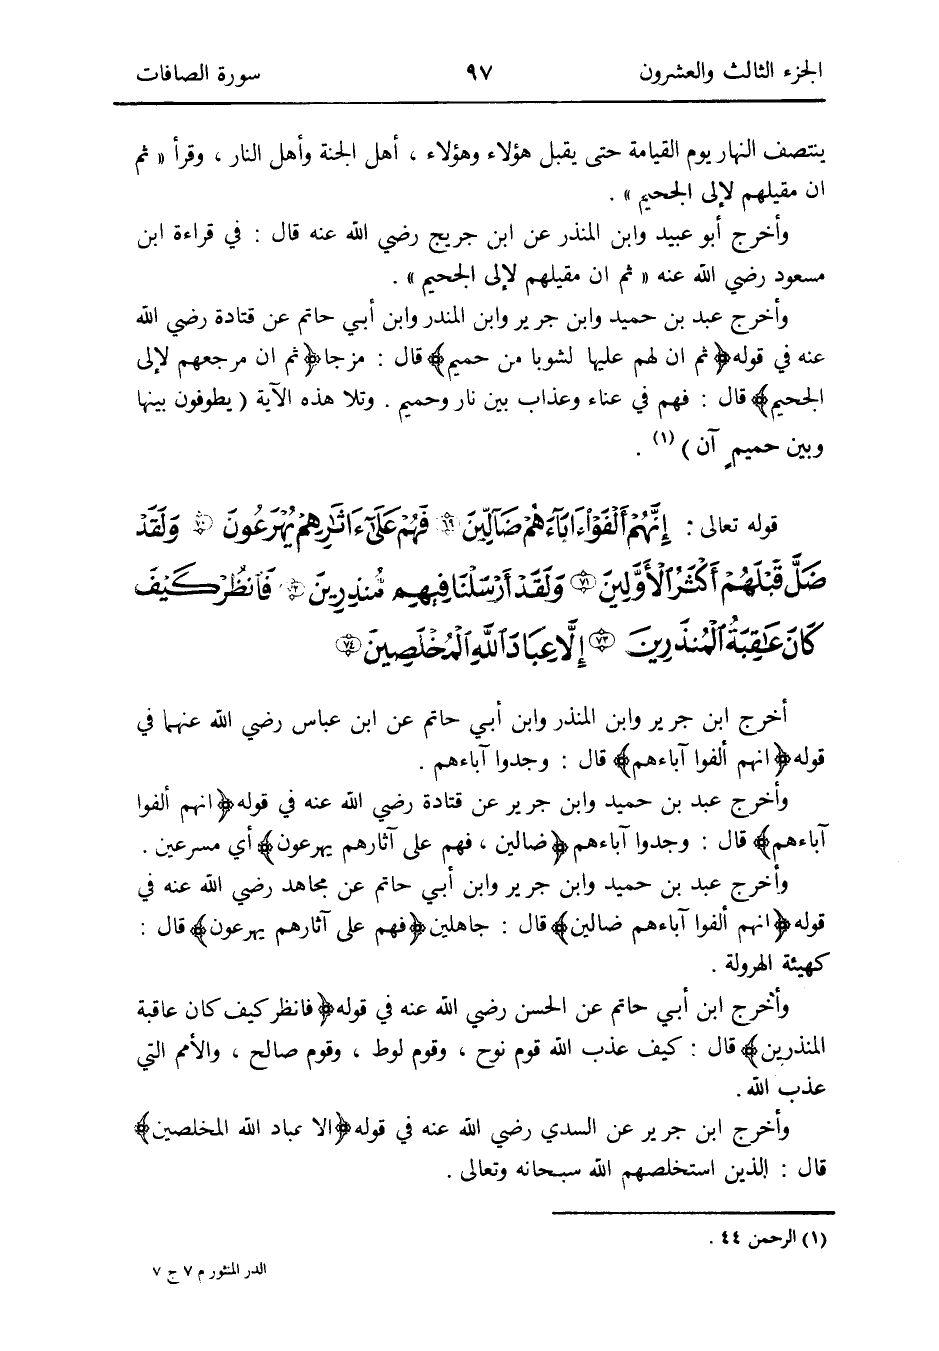 الجزء الثالث والعشرون ٩٧ سورة الصافات
ينتصف النهار يوم القيامة حتى يقبل هؤلاء وهؤلاء ، أهل الجنة وأهل النار ، وقرأ « ثم
ان مقيلهم لإلى الجحيم » .
وأخرج أبو عبيد وابن المنذر عن ابن جريج رضي الله عنه قال : في قراءة ابن
مسعود رضي الله عنه « ثم ان مقيلهم لإلى الجحيم » .
وأخرج عبد بن حميد وابن جرير وابن المندر وابن أبي حاتم عن قتادة رضي الله
عنه في قوله ﴿ ثم ان لهم عليها لشوبا من حميم ﴾ قال : مزجا ﴿ ثم ان مرجعهم لإلى
الجحيم ﴾ قال : فهم في عناء وعذاب بين نار وحميم . وتلا هذه الآية ( يطوفون بينها
وبين حميمٍ آن ) (١) .
قوله تعالى : إِنَّهُمْ أَلْفَوْا۟ ءَابَآءَهُمْ ضَآلِّينَ ٦٩ فَهُمْ عَلَىٰٓ ءَاثَٰرِهِمْ يُهْرَعُونَ ٧٠ وَلَقَدْ
ضَلَّ قَبْلَهُمْ أَكْثَرُ ٱلْأَوَّلِينَ ٧١ وَلَقَدْ أَرْسَلْنَا فِيهِم مُّنذِرِينَ ٧٢ فَٱنظُرْ كَيْفَ
كَانَ عَٰقِبَةُ ٱلْمُنذَرِينَ ٧٣ إِلَّا عِبَادَ ٱللَّهِ ٱلْمُخْلَصِينَ ٧٤
أخرج ابن جرير وابن المنذر وابن أبي حاتم عن ابن عباس رضي الله عنهما في
قوله ﴿ انهم ألفوا آباءهم ﴾ قال : وجدوا آباءهم .
وأخرج عبد بن حميد وابن جرير عن قتادة رضي الله عنه في قوله ﴿ انهم ألفوا
آباءهم ﴾ قال : وجدوا آباءهم ﴿ ضالين ، فهم على آثارهم يهرعون ﴾ أي مسرعين .
وأخرج عبد بن حميد وابن جرير وابن أبي حاتم عن مجاهد رضي الله عنه في
قوله ﴿ انهم ألفوا آباءهم ضالين ﴾ قال : جاهلين ﴿ فهم على آثارهم يهرعون ﴾ قال :
كهيئة الهرولة .
وأخرج ابن أبي حاتم عن الحسن رضي الله عنه في قوله ﴿ فانظر كيف كان عاقبة
المنذرين ﴾ قال : كيف عذب الله قوم نوح ، وقوم لوط ، وقوم صالح ، والأمم التي
عذب الله .
وأخرج ابن جرير عن السدي رضي الله عنه في قوله ﴿ الا عباد الله المخلصين ﴾
قال : الذين استخلصهم الله سبحانه وتعالى .
(١) الرحمن ٤٤ .
الدر المنثور م ٧ ج ٧